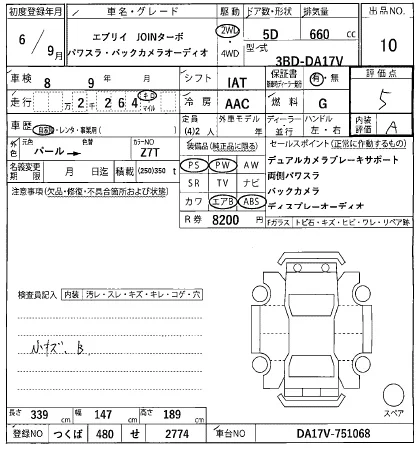 初度登録年月 車名・グレード 駆動 ドア数・形状 排気量 出品NO.
6/9月 エブリイ JOINターボ 2WD・4WD 5D 660cc 10
パワスラ・バックカメラオーディオ 型式 3BD-DA17V
車検 8年9月 シフト IAT 保証書 有・無 評価点 5
走行 万2千264 キロ マイル 冷房 AAC 燃料 G
車歴 自家用・レンタ・事業用( ) 定員 (4)2人 外車モデル 年 ディーラー・並行 ハンドル 左・右 内装評価 A
外色 元色 パール→ 色替 カラーNO Z7T
装備品(純正品に限る) セールスポイント(正常に作動するもの)
名義変更期限 月 日迄 積載 (250)350t
PS PW AW デュアルカメラブレーキサポート
SR TV ナビ 両側パワスラ
カワ エアB ABS バックカメラ
ディスプレーオーディオ
注意事項(欠品・修復・不具合箇所および状態)
R券 8200円 Fガラス トビ石・キズ・ヒビ・ワレ・リペア跡
検査員記入 内装 汚レ・スレ・キズ・キレ・コゲ・穴
小キズ、B
スペア
長さ 339cm 幅 147cm 高さ 189cm
登録NO つくば 480 せ 2774 車台NO DA17V-751068